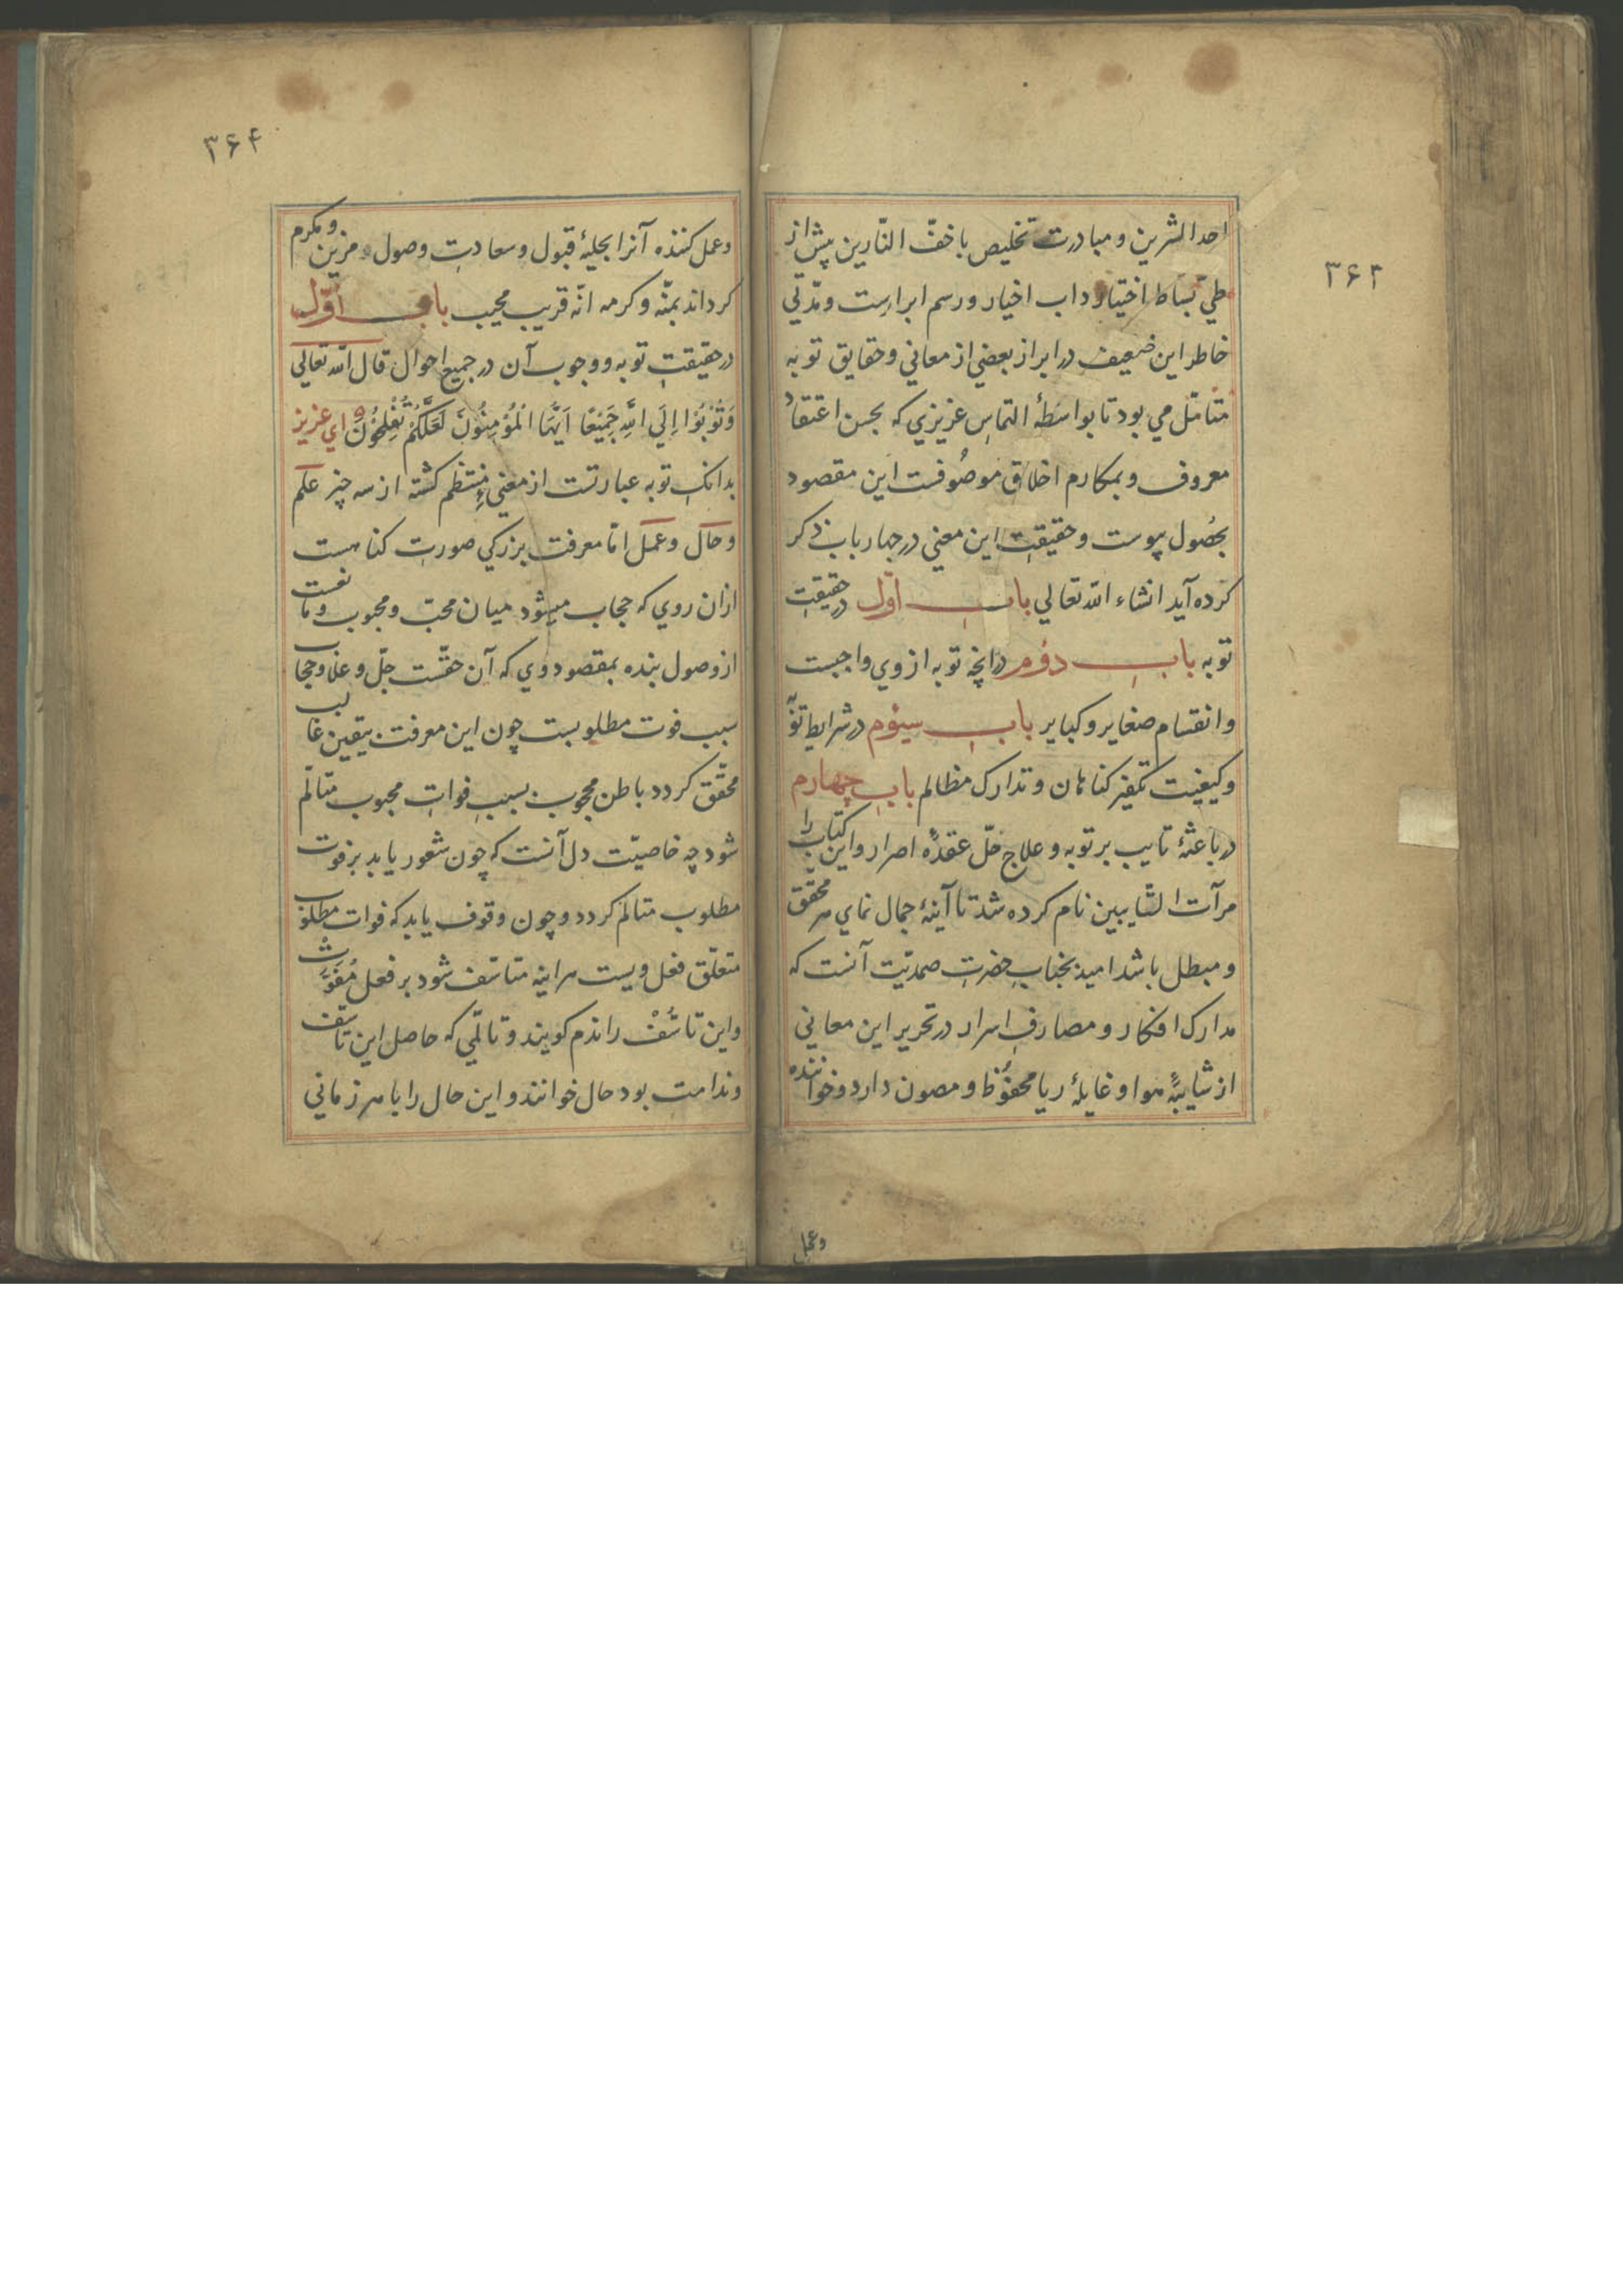 ۳۶۳
احد الشرین و مبادرت تخلیص باخفّ النّارین پیش از
طیّ بساط اختیار داب اخیار و رسم ابرارست و مدّتی
خاطر این ضعیف در ابراز بعضی از معانی و حقایق توبه
متأمّل می بود تا بواسطهٔ التماس عزیزی که بحسن اعتقاد
معروف و بمکارم اخلاق موصُوفست این مقصود
بحصُول پیوست و حقیقت این معنی در چهار باب ذکر
کرده آید انشاء الله تعالی باب اوّل در حقیقت
توبه باب دوُم در آنچه توبه از وی واجبست
و انقسام صغایر و کبایر باب سیوُم در شرایط توبه
و کیفیت تکفیر کناهان و تدارک مظالم باب چهارم
در باعثهٔ تایب بر توبه و علاج حلّ عقدهٔ اصرار و این کتاب را
مرآت التّایبین نام کرده شد تا آینهٔ جمال نمای هر محقّق
و مبطل باشد امید بجناب حضرت صمدیّت آنست که
مدارک افکار و مصارف اسرار در تحریر این معانی
از شایبهٔ هوا و غایلهٔ ریا محفوُظ و مصون دارد و خواننده
وعمل
۳۶۴
وعمل کننده آنرا بحلیهٔ قبول و سعادت وصول مزین و مکرم
کرداند بمنّه و کرمه انّه قریب مجیب باب اوّل
در حقیقت توبه و وجوب آن در جمیع احوال قال الله تعالی
وَتُوْبُوْا اِلَی اللَّهِ جَمِیْعًا اَیُّهَا الْمُؤْمِنُوْنَ لَعَلَّکُمْ تُفْلِحُوْنَ ای عزیز
بدانک توبه عبارتست از معنیٔ منتظم کشته از سه چیز علم
و حال و عمل امّا معرفت بزرکی صورت کناهست
ازان روی که حجاب میشود میان محبّ و محبوب و مانعست
از وصول بنده بمقصود وی که آن حقّست جلّ و علا و حجاب
سبب فوت مطلوبست چون این معرفت بیقین غالب
محقّق کردد باطن محجوب بسبب فوات محبوب متألّم
شود چه خاصیّت دل آنست که چون شعور یابد بر فوت
مطلوب متالم کردد و چون وقوف یابد که فوات مطلوب
متعلّق فعل ویست هراینه متاسّف شود بر فعل مُفَوِّت
و این تاسُّفْ را ندم کویند و تالّمی که حاصل این تاسّف
و ندامت بود حال خوانند و این حال را با هر زمانی